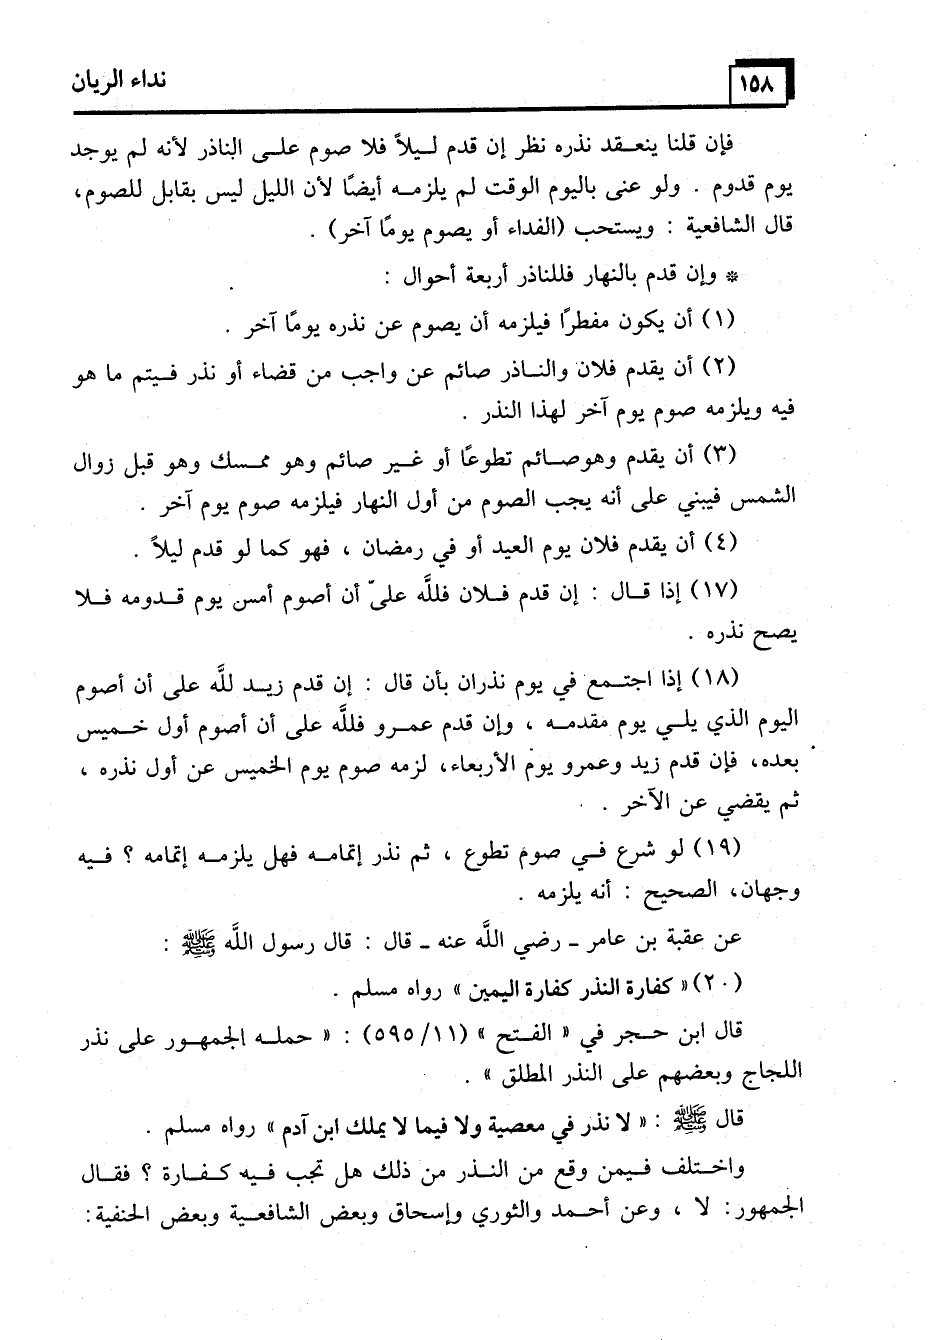 نداء الريان
١٥٨
فإن قلنا ينعقد نذره نظر إن قدم ليلاً فلا صوم على الناذر لأنه لم يوجد
يوم قدوم . ولو عنى باليوم الوقت لم يلزمه أيضًا لأن الليل ليس بقابل للصوم،
قال الشافعية : ويستحب (الفداء أو يصوم يومًا آخر) .
* وإن قدم بالنهار فللناذر أربعة أحوال :
(١) أن يكون مفطرًا فيلزمه أن يصوم عن نذره يومًا آخر .
(٢) أن يقدم فلان والناذر صائم عن واجب من قضاء أو نذر فيتم ما هو
فيه ويلزمه صوم يوم آخر لهذا النذر .
(٣) أن يقدم وهوصائم تطوعًا أو غير صائم وهو ممسك وهو قبل زوال
الشمس فيبني على أنه يجب الصوم من أول النهار فيلزمه صوم يوم آخر .
(٤) أن يقدم فلان يوم العيد أو في رمضان ، فهو كما لو قدم ليلاً .
(١٧) إذا قال : إن قدم فلان فللَّه عليّ أن أصوم أمس يوم قدومه فلا
يصح نذره .
(١٨) إذا اجتمع في يوم نذران بأن قال : إن قدم زيد للَّه على أن أصوم
اليوم الذي يلي يوم مقدمه ، وإن قدم عمرو فللَّه على أن أصوم أول خميس
بعده، فإن قدم زيد وعمرو يوم الأربعاء، لزمه صوم يوم الخميس عن أول نذره ،
ثم يقضي عن الآخر .
(١٩) لو شرع في صوم تطوع ، ثم نذر إتمامه فهل يلزمه إتمامه ؟ فيه
وجهان، الصحيح : أنه يلزمه .
عن عقبة بن عامر ـ رضي اللَّه عنه ـ قال : قال رسول اللَّه ﷺ :
(٢٠) « كفارة النذر كفارة اليمين » رواه مسلم .
قال ابن حجر في « الفتح » (١١/٥٩٥) : « حمله الجمهور على نذر
اللجاج وبعضهم على النذر المطلق » .
قال ﷺ : « لا نذر في معصية ولا فيما لا يملك ابن آدم » رواه مسلم .
واختلف فيمن وقع من النذر من ذلك هل تجب فيه كفارة ؟ فقال
الجمهور: لا ، وعن أحمد والثوري وإسحاق وبعض الشافعية وبعض الحنفية: